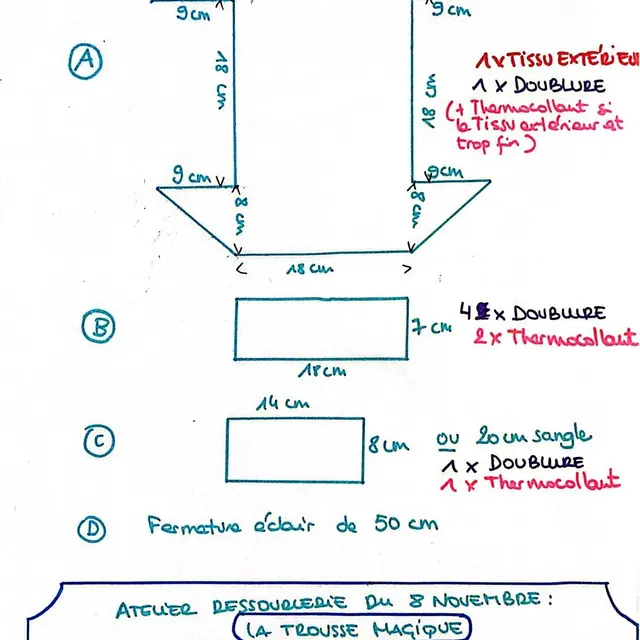 9 cm
9 cm
A
18 cm
18 cm
1 x TISSU EXTÉRIEUR
1 x DOUBLURE
(+ Thermocollant si
le Tissu extérieur et
trop fin)
9 cm
9cm
8 cm
8 cm
18 cm
B
7 cm
4 x DOUBLURE
2 x Thermocollant
18 cm
14 cm
C
8 cm
ou 20 cm sangle
1 x DOUBLURE
1 x Thermocollant
D Fermeture éclair de 50 cm
ATELIER RESSOURCERIE DU 8 NOVEMBRE :
LA TROUSSE MAGIQUE